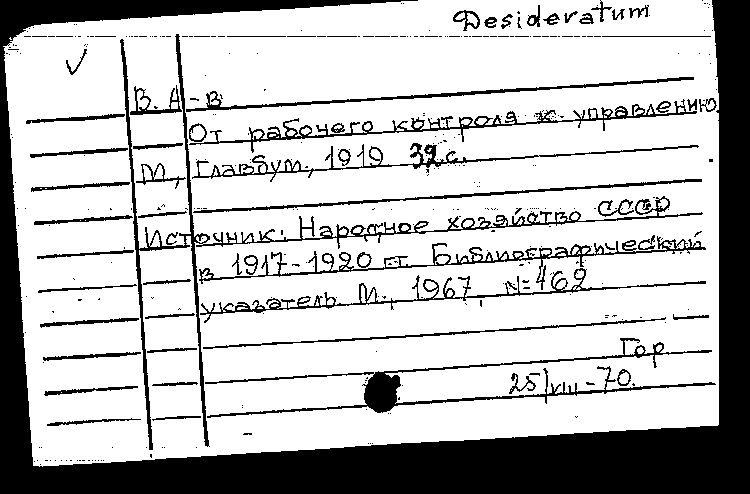 Desideratum
В. А-в
От рабочего контроля к управлению.
М., Главбум, 1919 32 с.
Источник: Народное хозяйство СССР
в 1917-1920 гг. Библиографический
указатель. М., 1967, N=462
Гор
25/VIII-70.